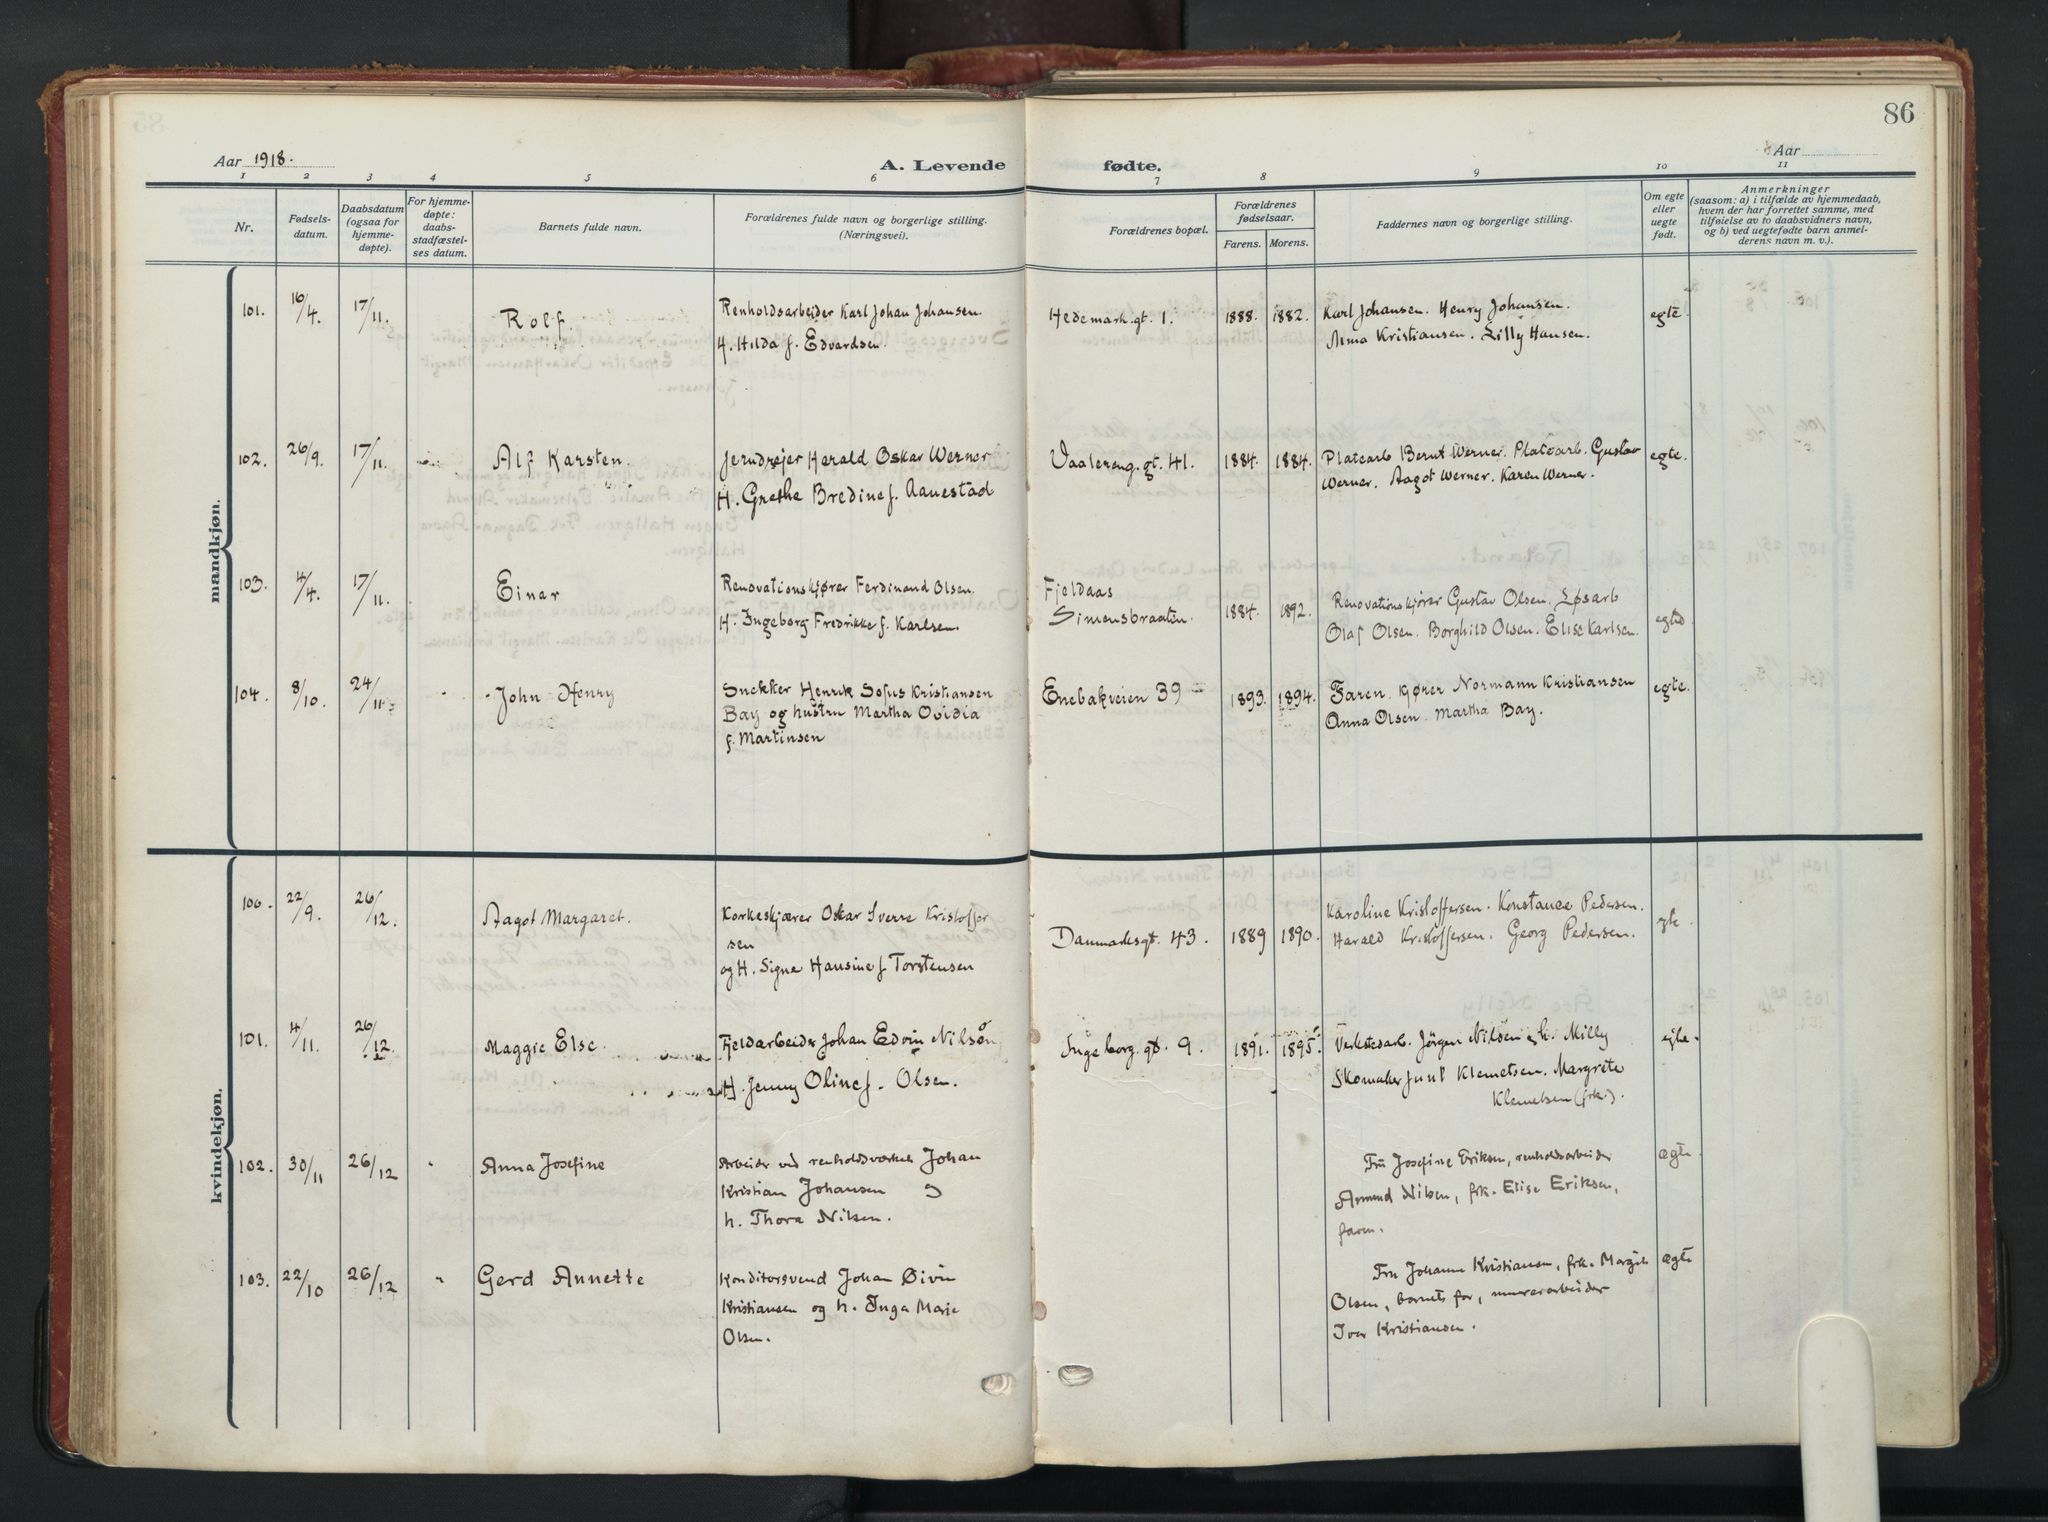 86
Aar 1918.
A. Levende fødte.
Aar
1 2 3 4 5 6 7 8 9 10 11
Nr.
Fødsels-
datum.
Daabsdatum
(ogsaa for
hjemme-
døpte).
For hjemme-
døpte:
daabs-
stadfæstel-
ses datum.
Barnets fulde navn.
Forældrenes fulde navn og borgerlige stilling.
(Næringsvei).
Forældrenes bopæl.
Forældrenes
fødselsaar.
Farens. Morens.
Faddernes navn og borgerlige stilling.
Om egte
eller
uegte
født.
Anmerkninger
(saasom: a) i tilfælde av hjemmedaab,
hvem der har forrettet samme, med
tilføielse av to daabsvidners navn,
og b) ved uegtefødte barn anmel-
derens navn m. v.).
mandkjøn.
101. 16/4. 17/11. Rolf.
Renholdsarbeider Karl Johan Johansen
H. Hilda f. Edvardsen.
Hedemark.gt. 1. 1888. 1882.
Karl Johansen. Henry Johansen.
Anna Kristiansen. Lilly Hansen.
egte.
102. 26/9. 17/11. Alf Karsten.
Jerndrejer Herald Oskar Werner
H. Grethe Bredine f. Aanestad
Vaalereng.gt. 41. 1884. 1884.
Platearb Bernt Werner. Platearb. Gustav
Werner. Aagot Werner. Karen Werner.
egte.
103. 4/4. 17/11. Einar
Renovationskjører Ferdinand Olsen.
H. Ingeborg Fredrikke f. Karlsen.
Fjeldaas
Simensbraaten. 1884. 1892.
Renovationskjører Gustav Olsen. Løsarb
Olaf Olsen. Borghild Olsen. Elise Karlsen.
egte.
104. 8/10. 24/11 John Henry
Snekker Henrik Sofus Kristiansen
Bay og hustru Martha Ovidia
f. Martinsen
Enebakveien 39 1893. 1894.
Faren. Kjører Normann Kristiansen
Anna Olsen. Martha Bay.
egte.
kvindekjøn.
100. 22/9. 26/12. Aagot Margaret.
Korkeskjærer Oskar Sverre Kristoffer
sen
og H. Signe Hansine f Torstensen
Danmarksgt. 43. 1889 1890.
Karoline Kristoffersen. Konstance Pedersen.
Harald Kristoffersen. Georg Pedersen.
egte.
101. 4/11. 26/12. Maggie Else.
Fjeldarbeider Johan Edvin Nilsen
H. Jenny Oline f. Olsen.
Ingeborg.gt. 9. 1891. 1895.
Verkstedarb. Jörgen Nilsen og h. Milly
Skomaker Juul Klemetsen. Margrete
Klemetsen (frk.).
egte.
102. 30/11 26/12 " Anna Josefine
Arbeider ved renholdsverket Johan
Kristian Johansen og
h. Thora Nilsen.
Fru Josefine Eriksen, renholdsarbeider
Armund Nilsen, frk. Elise Eriksen,
faren.
ægte
103. 22/10 26/12 " Gerd Annette
Konditorsvend Johan Øivin
Kristiansen og h. Inga Marie
Olsen.
Fru Johanne Kristiansen, frk. Margit
Olsen, barnets far, murerarbeider
Iver Kristiansen.
ægte